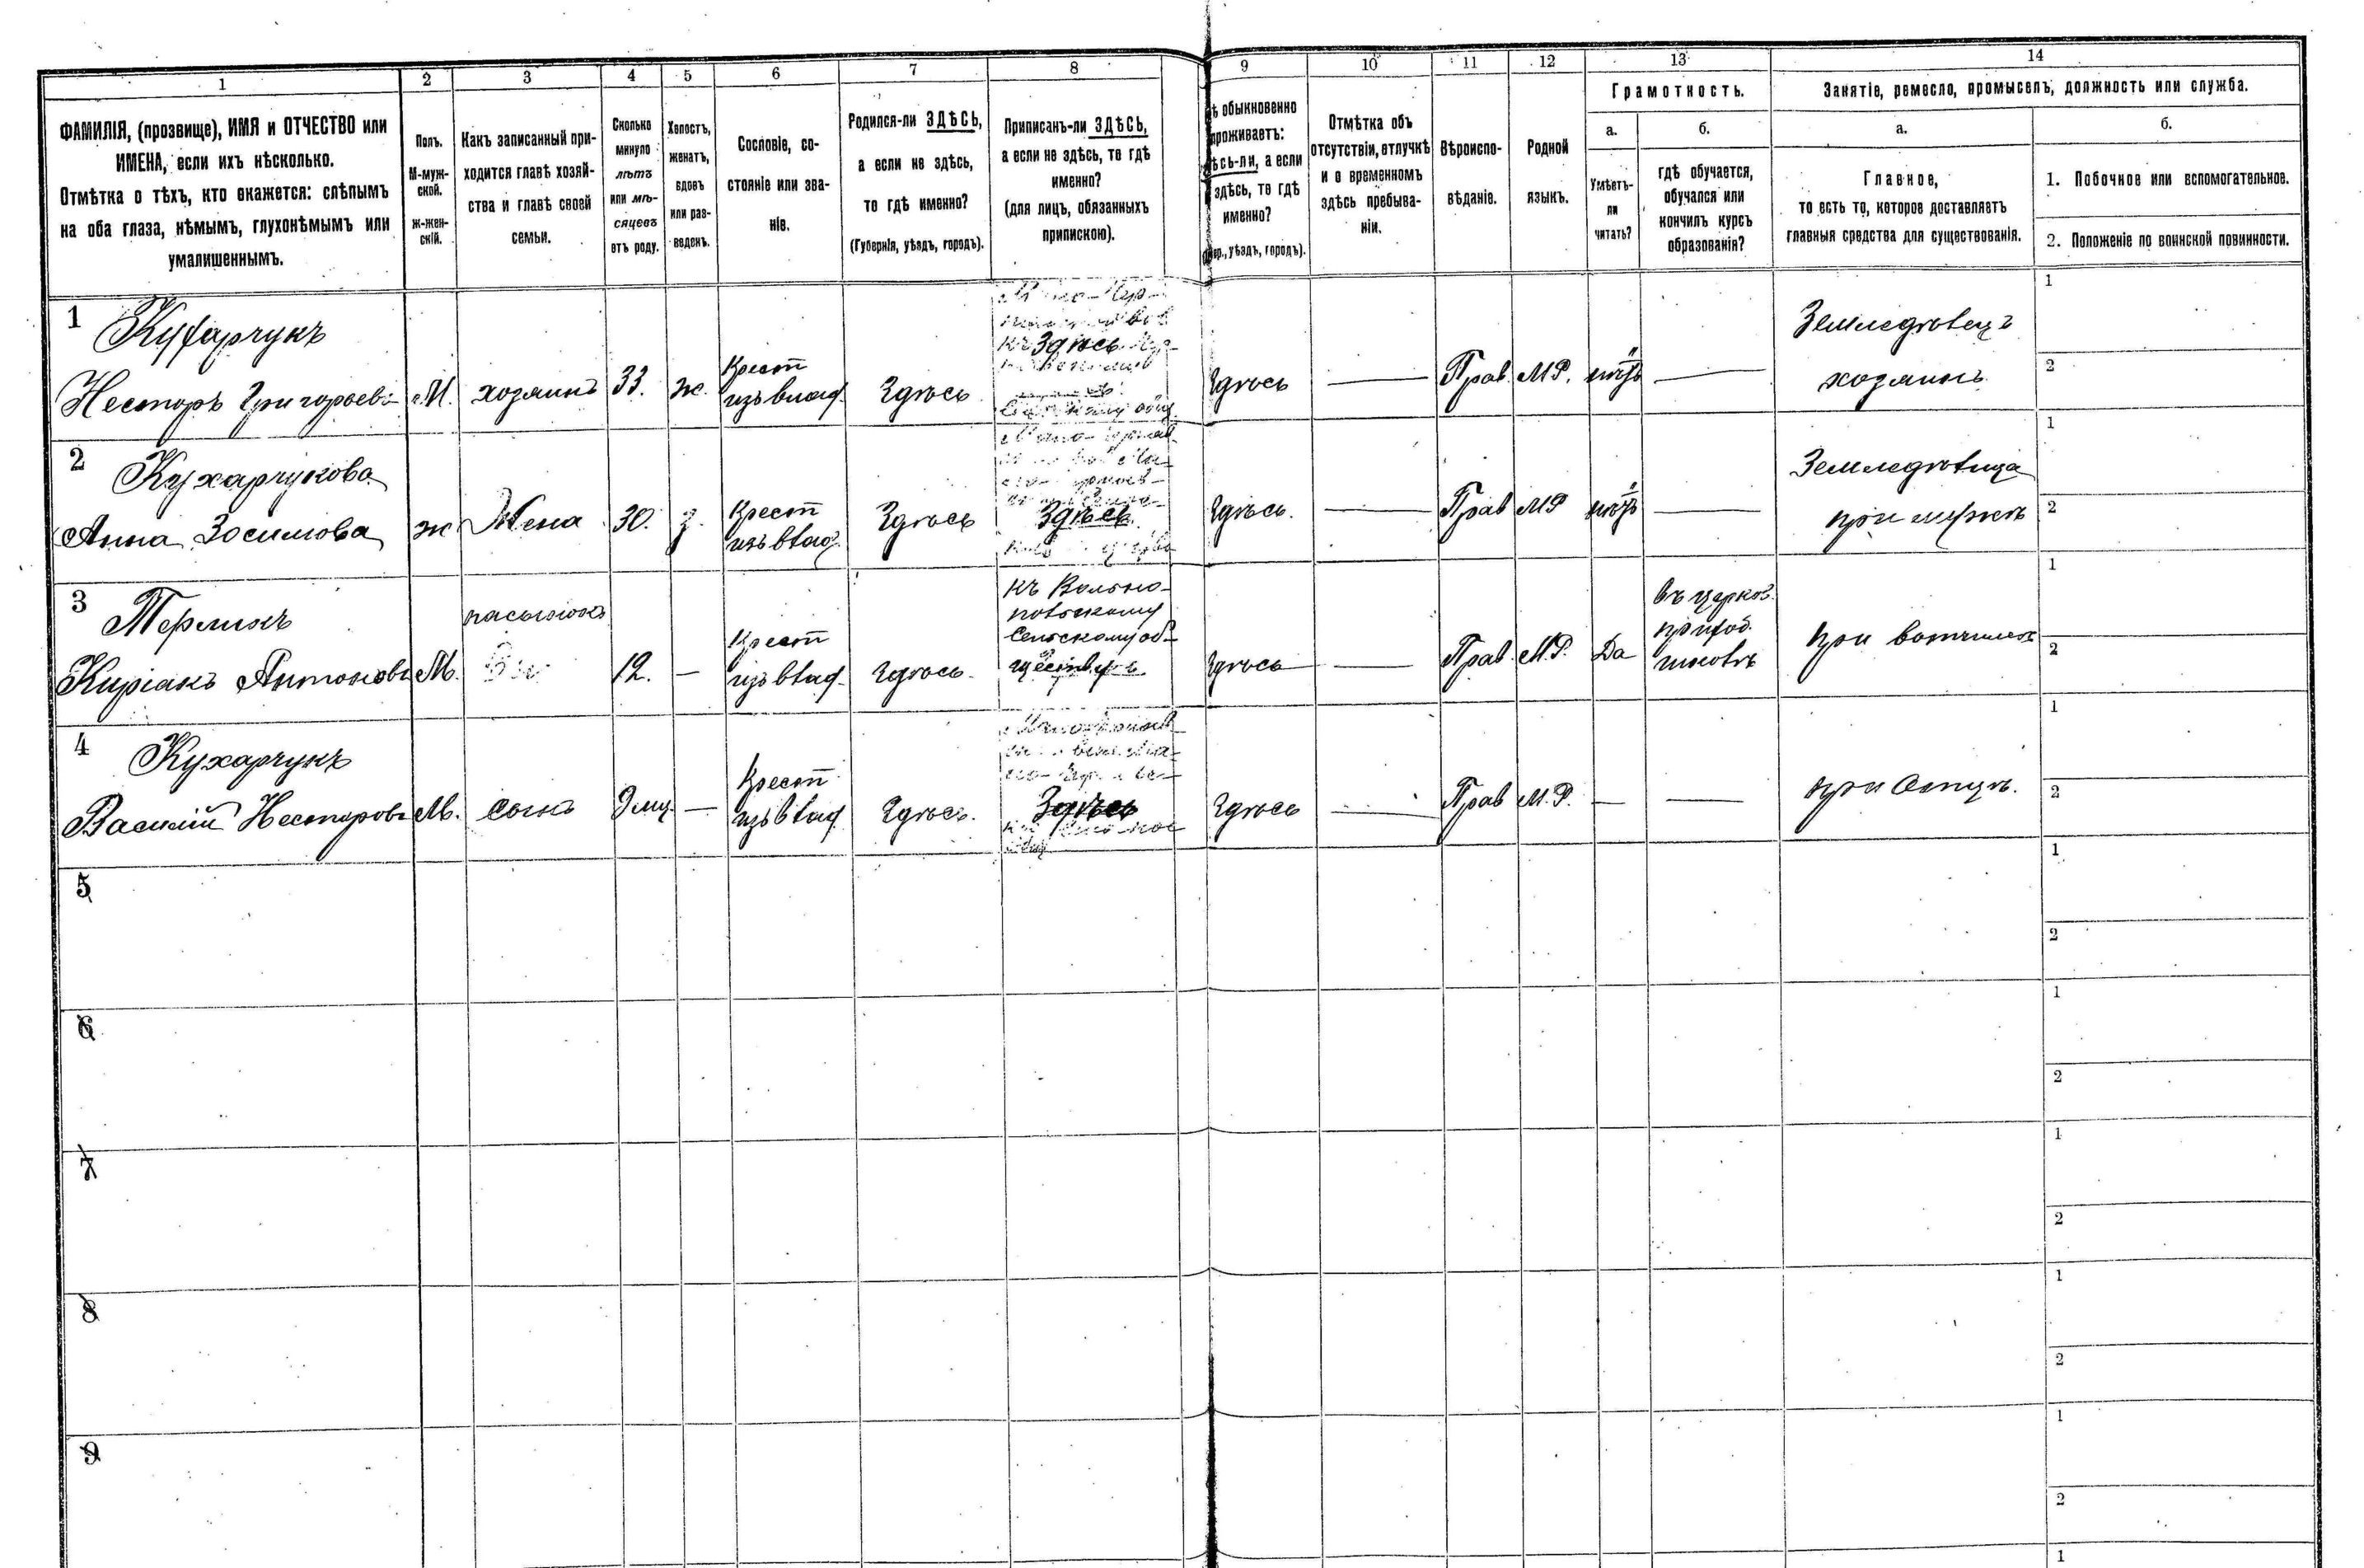 1
2
3
4
5
6
7
8
9
10
11
12
13
14
Грамотность.
Занятіе, ремесло, промыселъ, должность или служба.
ФАМИЛІЯ, (прозвище), ИМЯ и ОТЧЕСТВО или
ИМЕНА, если ихъ нѣсколько.
Отмѣтка о тѣхъ, кто окажется: слѣпымъ
на оба глаза, нѣмымъ, глухонѣмымъ или
умалишеннымъ.
Полъ.
М-муж-
ской.
Ж-жен-
скій.
Какъ записанный при-
ходится главѣ хозяй-
ства и главѣ своей
семьи.
Сколько
минуло
лѣтъ
или мѣ-
сяцевъ
отъ роду.
Холостъ,
женатъ,
вдовъ
или раз-
веденъ.
Сословіе, со-
стояніе или зва-
ніе.
Родился-ли ЗДѢСЬ,
а если не здѣсь,
то гдѣ именно?
(Губернія, уѣздъ, городъ).
Приписанъ-ли ЗДѢСЬ,
а если не здѣсь, то гдѣ
именно?
(для лицъ, обязанныхъ
припискою).
ѣ обыкновенно
проживаетъ:
ѣсь-ли, а если
здѣсь, то гдѣ
именно?
бер., уѣздъ, городъ).
Отмѣтка объ
отсутствіи, отлучкѣ
и о временномъ
здѣсь пребыва-
ніи.
Вѣроиспо-
вѣданіе.
Родной
языкъ.
а.
Умѣетъ-
ли
читать?
б.
гдѣ обучается,
обучался или
кончилъ курсъ
образованія?
а.
Главное,
то есть то, которое доставляетъ
главныя средства для существованія.
б.
1. Побочное или вспомогательное.
2. Положеніе по воинской повинности.
1
Кухарчукъ
Несторъ Григорьевъ
М.
хозяинъ
33.
ж.
Крест
изъ влад.
Здѣсь
Здѣсь
Здѣсь
—
Прав.
М.Р.
нѣтъ
—
Земледѣлецъ
хозяинъ
1
2
2
Кухарчукова
Анна Зосимова
ж
Жена
30.
з.
Крест
изъ влад.
Здѣсь
Здѣсь
Здѣсь.
—
Прав
М.Р
нѣтъ
—
Земледѣлица
при мужѣ
1
2
3
Терлихъ
Киріакъ Антоновъ
М.
пасынокъ
12.
—
Крест
изъ влад.
Здѣсь.
Къ Вольно-
Сельскому об-
ществу
Здѣсь
—
Прав.
М.Р.
Да
въ церков.
приход.
школѣ
при вотчимѣ
1
2
4
Кухарчукъ
Василій Несторовъ
М.
сынъ
9 мц.
—
Крест
изъ влад.
Здѣсь.
Здѣсь
Здѣсь
—
Прав
М.Р.
—
—
при Отцѣ.
1
2
5
1
2
6
1
2
7
1
2
8
1
2
9
1
2
1